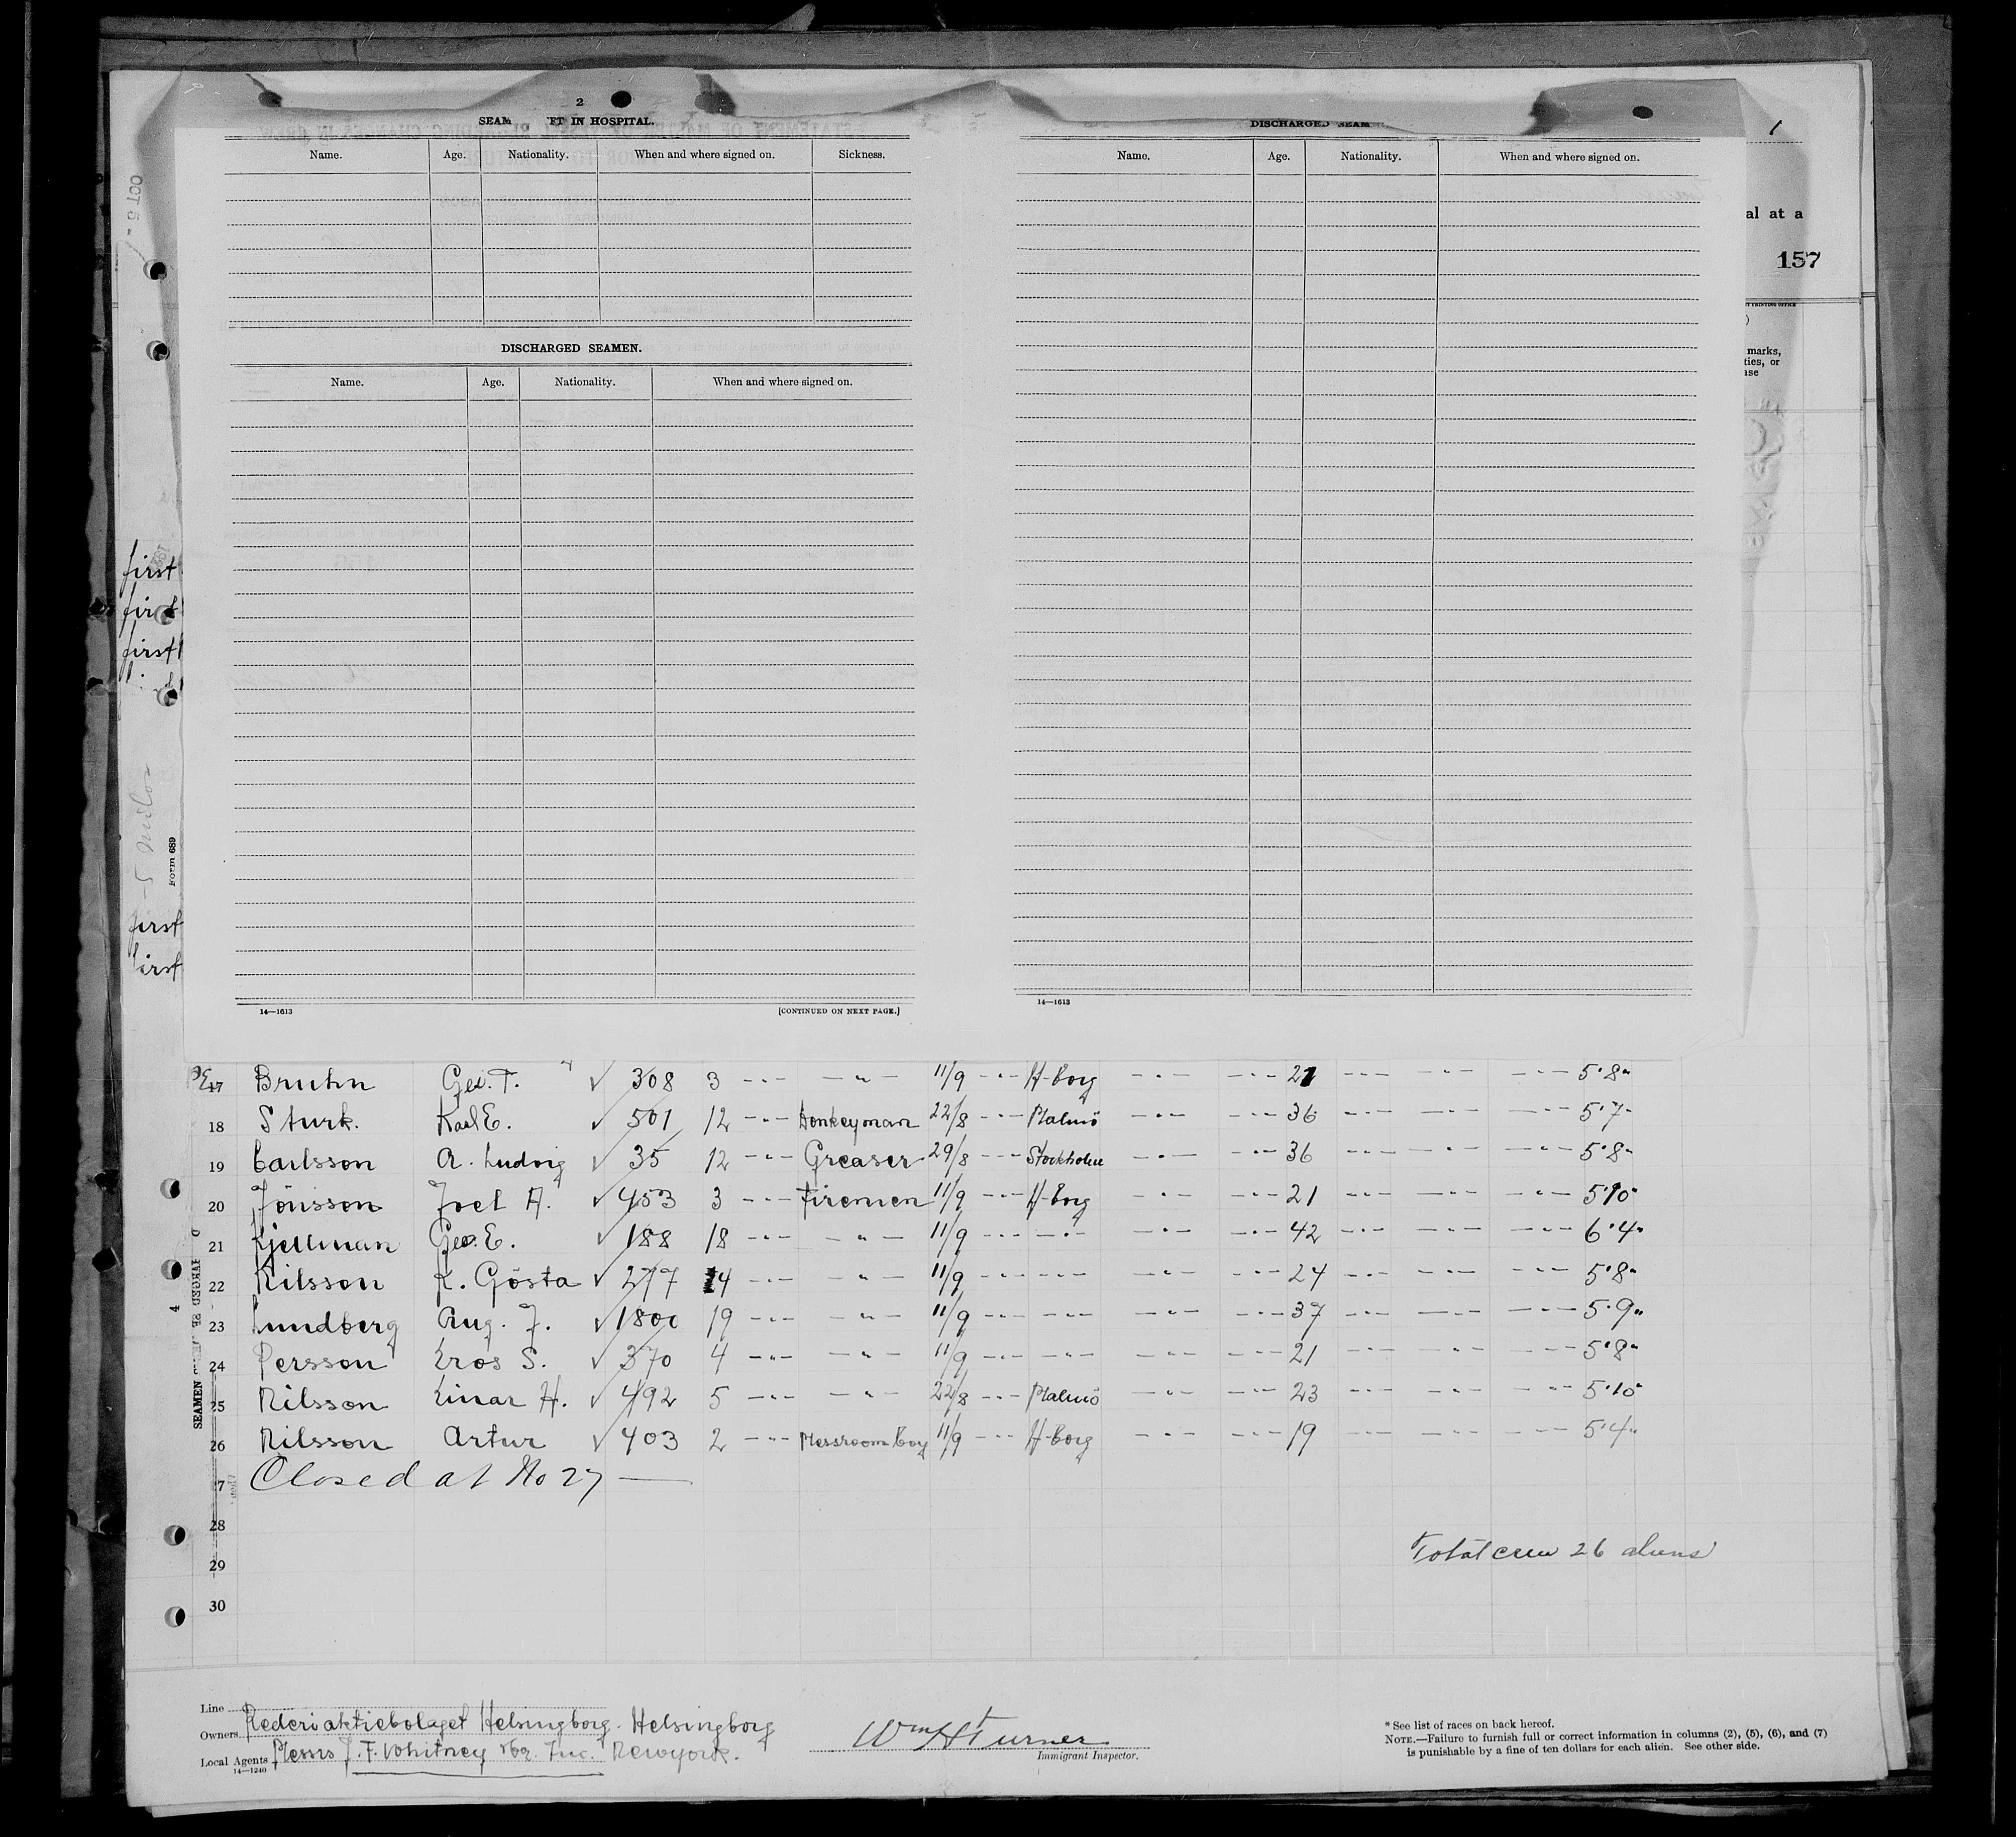 2
SEAM FT IN HOSPITAL.
Name. Age. Nationality. When and where signed on. Sickness.
DISCHARGED SEAMEN.
Name. Age. Nationality. When and where signed on.
14—1613 [CONTINUED ON NEXT PAGE.]
DISCHARGED SEAM
Name. Age. Nationality. When and where signed on.
14—1613
1
al at a
157
marks,
ties, or
ase
OCT 5
first
first
first
Form 689
first
first
17 Bruhn Geo. T. √ 308 3 -"- -"- 11/9 -"- H-borg -"- -"- 21 -"- -"- -"- 5'8"
18 Sturk. Karl E. √ 501 12 -"- Donkeyman 22/8 -"- Malmö -"- -"- 36 -"- -"- -"- 5'7"
19 Carlsson A. Ludvig √ 35 12 -"- Greaser 29/8 -"- Stockholm -"- -"- 36 -"- -"- -"- 5'8"
20 Jönsson Joel A. √ 453 3 -"- Firemen 11/9 -"- H-borg -"- -"- 21 -"- -"- -"- 5'10"
21 Kjellman Geo. E. √ 188 18 -"- -"- 11/9 -"- -"- -"- -"- 42 -"- -"- -"- 6'4"
22 Nilsson K. Gösta √ 277 14 -"- -"- 11/9 -"- -"- -"- -"- 24 -"- -"- -"- 5'8"
23 Lundberg Aug. F. √ 1800 19 -"- -"- 11/9 -"- -"- -"- -"- 37 -"- -"- -"- 5'9"
24 Persson Eros S. √ 370 4 -"- -"- 11/9 -"- -"- -"- -"- 21 -"- -"- -"- 5'8"
25 Nilsson Einar H. √ 492 5 -"- -"- 22/8 -"- Malmö -"- -"- 23 -"- -"- -"- 5'10"
26 Nilsson Artur √ 403 2 -"- Messroom boy 11/9 -"- H-borg -"- -"- 19 -"- -"- -"- 5'4"
7 Closed at No 27 —
28
Total crew 26 aliens
29
30
Line
Owners Rederiaktiebolaget Helsingborg. Helsingborg
Local Agents Messrs J. F. Whitney & Co. Inc. New York.
14—1240
Wm H Turner
Immigrant Inspector.
* See list of races on back hereof.
NOTE.—Failure to furnish full or correct information in columns (2), (5), (6), and (7)
is punishable by a fine of ten dollars for each alien. See other side.